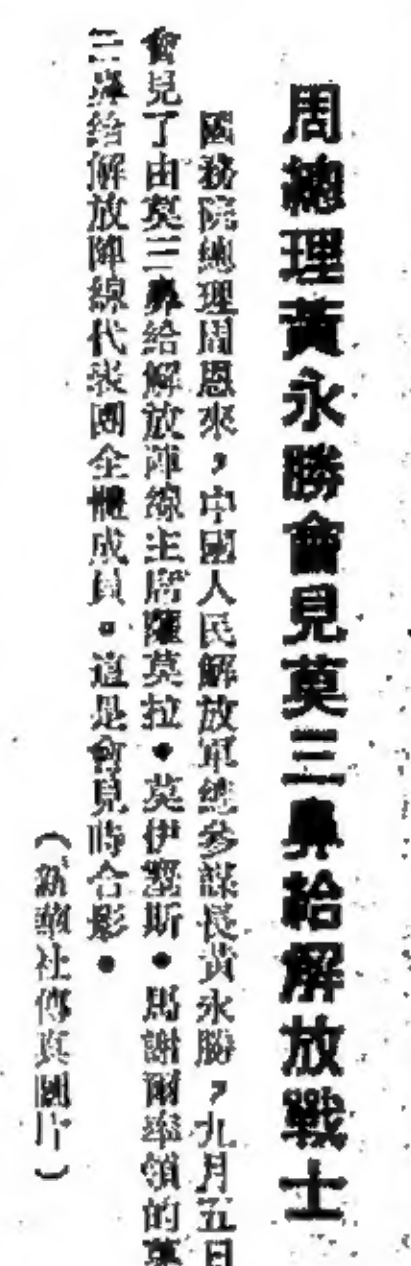 周總理黃永勝會見莫三鼻給解放戰士
國務院總理周恩來，中國人民解放軍總參謀長黃永勝，九月五日
會見了由莫三鼻給解放陣線主席薩莫拉•莫伊塞斯•馬謝爾率領的莫
三鼻給解放陣線代表團全體成員。這是會見時合影。
（新華社傳真圖片）